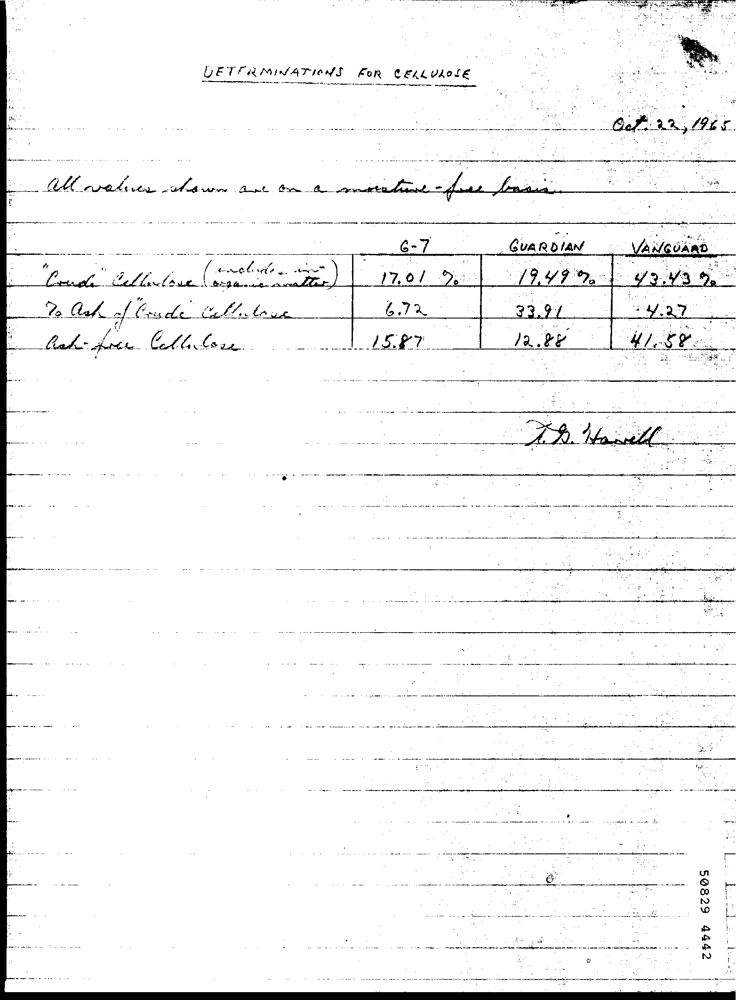 DETERMINATIONS FOR CELLULOSE
Oct. 22, 1965
All values shown are on a moisture-free basis.
G-7 GUARDIAN VANGUARD
"Crude" Cellulose (includes in-organic matter) 17.01 % 19.49 % 43.43 %
% Ash of "Crude" Cellulose 6.72 33.91 4.27
Ash-free Cellulose 15.87 12.88 41.58
Harvell
50829 4442